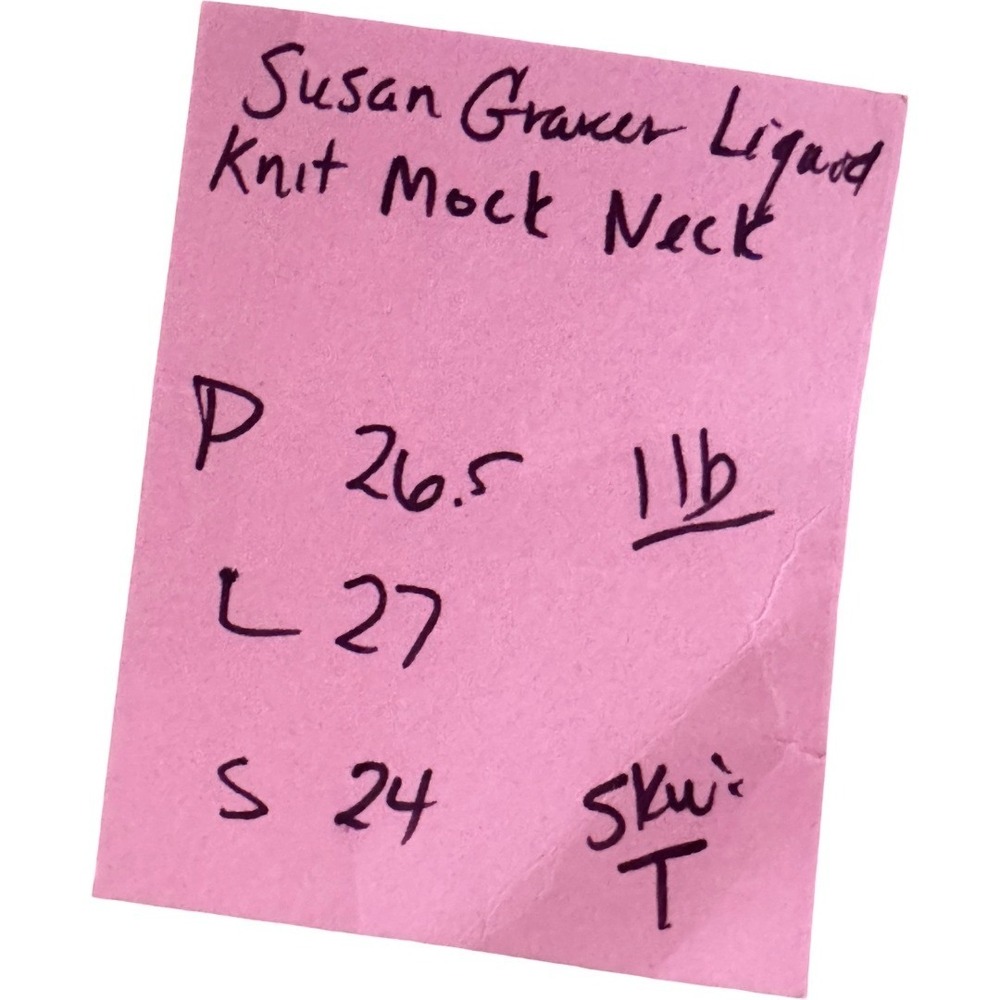 Susan Graver Liquid
Knit Mock Neck
P 26.5 1lb
L 27
S 24 SKU:
T